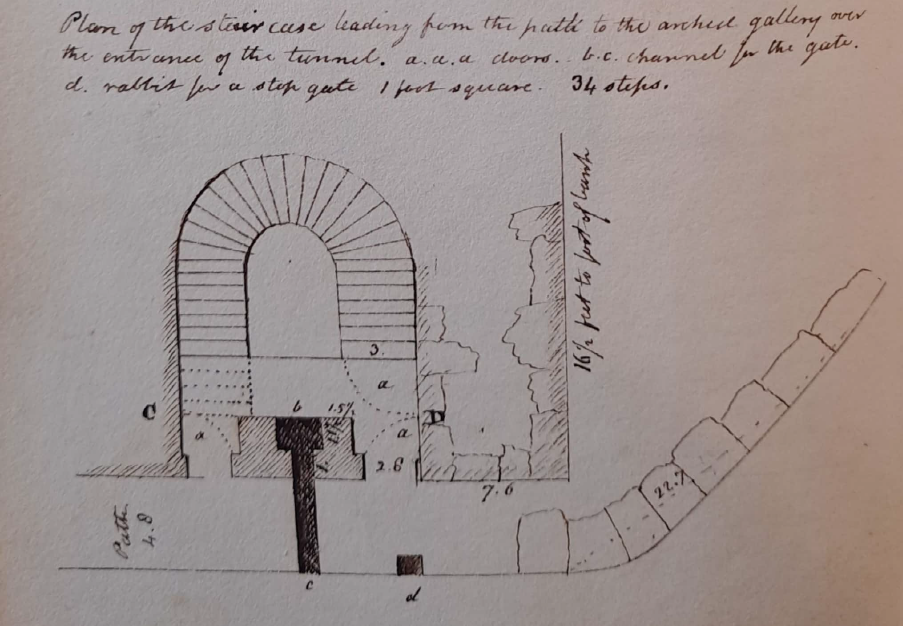 Plan of the stair case leading from the path to the arched gallery over
the entrance of the tunnel. a.a.a doors. b.c. channel for the gate.
d. rabbit for a stop gate 1 foot square. 34 steps.
16½ feet to foot of bank
3.
a
C
b
1.5½
D
a
a
1.
2.6
7.6
22.7
Path
4.8
c
d